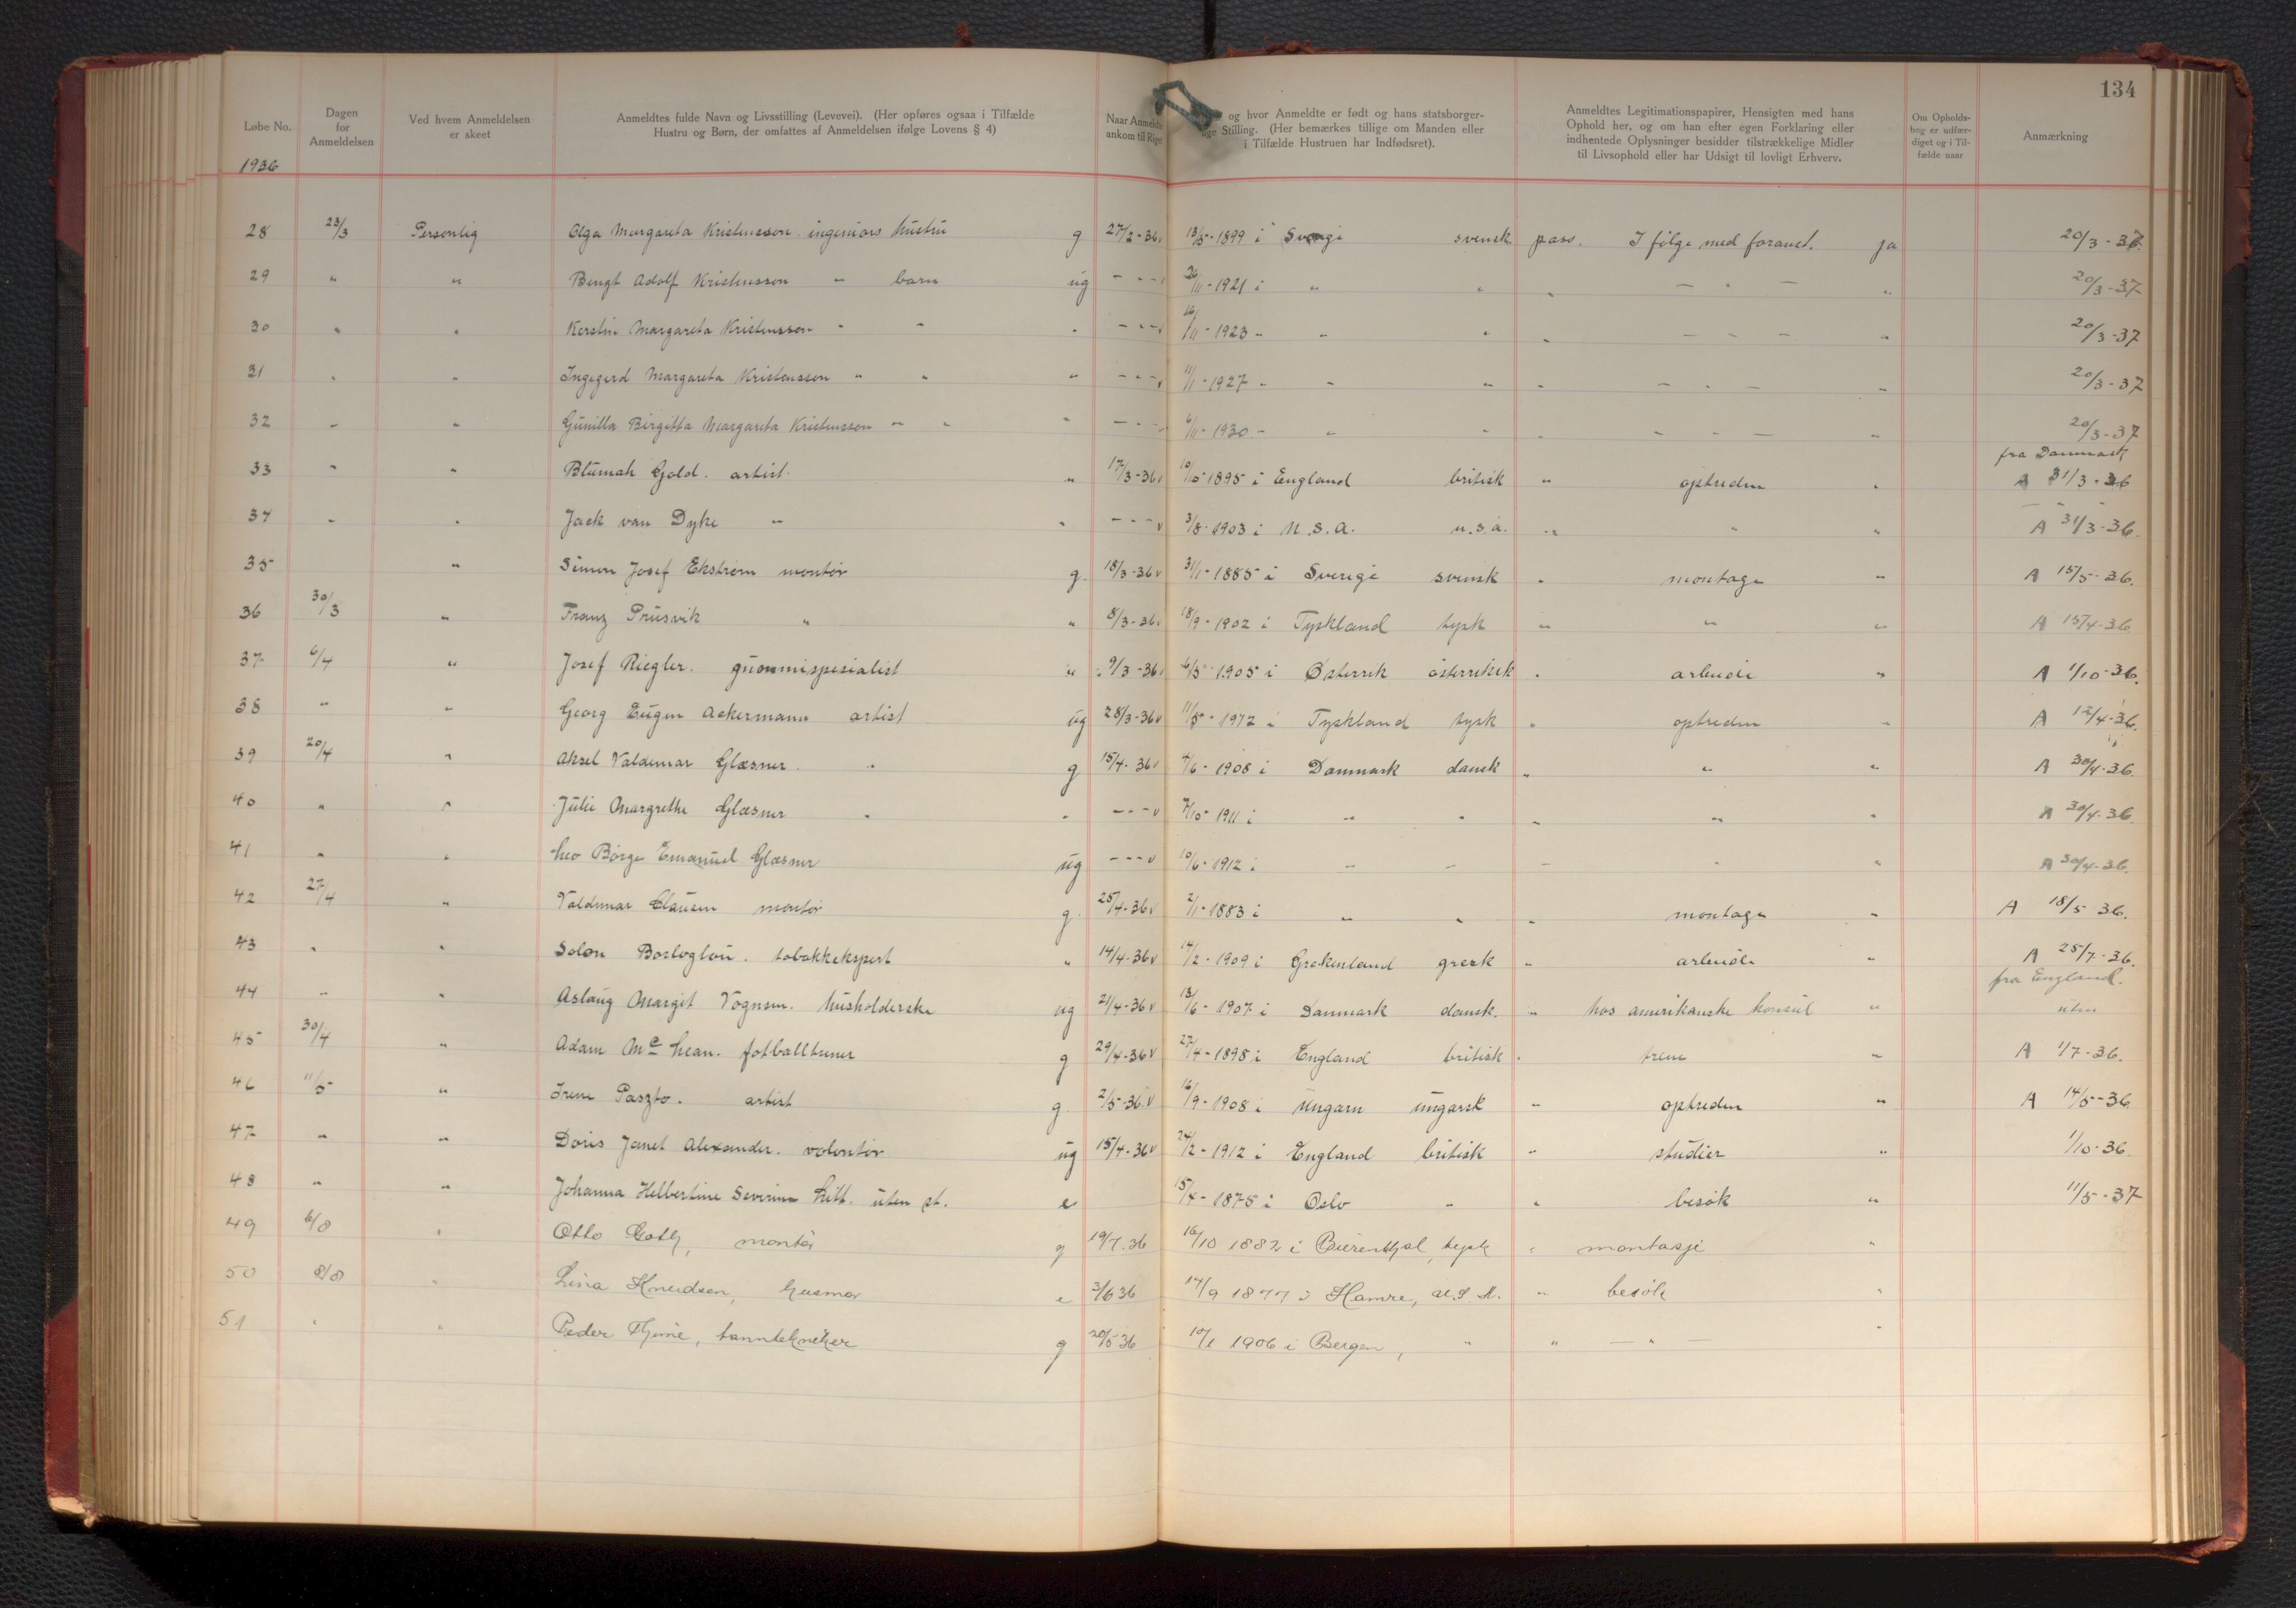 134
Løbe No.
Dagen for Anmeldelsen
Ved hvem Anmeldelsen er skeet
Anmeldtes fulde Navn og Livsstilling (Levevei). (Her opføres ogsaa i Tilfælde Hustru og Børn, der omfattes af Anmeldelsen ifølge Lovens § 4)
Naar Anmeldte ankom til
og hvor Anmeldte er født og hans statsborgerlige Stilling. (Her bemærkes tillige om Manden eller i Tilfælde Hustruen har Indfødsret).
Anmeldtes Legitimationspapirer, Hensigten med hans Ophold her, og om han efter egen Forklaring eller indhentede Oplysninger besidder tilstrækkelige Midler til Livsophold eller har Udsigt til lovligt Erhverv.
Om Opholdsbog er udfærdiget og i Tilfælde naar
Anmærkning
1936
28 23/3 Personlig Olga Margareta Kristensson ingeniørs hustru g 27/2-36 v 13/5-1899 i Sverige svensk pass. I følge med foranst. ja 20/3-37
29 " " Bengt Adolf Kristensson " barn ug - - - /11-1921 i " " " - " - " 20/3-37
30 " " Kerstin Margareta Kristensson " " " - - - v 16/11-1923 - " " " - " - " 20/3-37
31 " " Ingegerd Margareta Kristensson " " " - - - v 11/1-1927 - " " " - " - " 20/3-37
32 " " Gunilla Birgitta Margareta Kristensson " " " - - - 6/11-1930 - " " " - " - " 20/3-37
33 " " Blumah Gold. artist. " 17/3-36 v 10/10-1895 i England britisk " optreden " fra Danmark A 31/3-36
34 " " Jack van Dyke " " - - - v 3/8-1903 i U.S.A. u.s.a. " " " A 31/3-36.
35 " Simon Josef Ekström montør g. 18/3-36 v 31/1-1885 i Sverige svensk " montage " A 15/5-36.
36 30/3 " Franz Prusvik " " 8/3-36 v 18/9-1902 i Tyskland tysk " " " A 15/4-36.
37 6/4 " Josef Riegler. gummispesialist " 9/3-36 v 6/5-1905 i Østerrik østerriksk " arbeide " A 1/10-36.
38 " " Georg Eugen Ackermann artist ug 28/3-36 v 11/5-1912 i Tyskland tysk " optreden " A 12/4-36.
39 20/4 " Aksel Valdemar Glæsner. " g 15/4-36 v /6-1908 i Danmark dansk " " " A 30/4-36.
40 " " Julie Margrethe Glæsner " " - - - v 7/10-1911 i " " " " " A 30/4-36.
41 " " Leo Børge Emanuel Glæsner ug - - - v 10/6-1912 i " " " " " A 30/4-36.
42 27/4 " Valdemar Clausen montør g. 25/4-36 v 2/1-1883 i " " " montage " A 18/5 36.
43 " " Solon Bosloglou. tobakkekspert " 14/4-36 v 14/2-1909 i Grekenland gresk " arbeide " A 25/7-36.
44 " " Aslaug Margit Vognsen. husholderske ug 21/4-36 v 13/6-1907 i Danmark dansk. " hos amerikanske konsul " fra England. uten
45 30/4 " Adam Mc Lean. fotballtrener g 29/4-36 v 27/4-1898 i England britisk " trene " A 1/7-36.
46 11/5 " Irene Paszto. artist g. 2/5-36. v 16/9-1908 i Ungarn ungarsk " optreden " A 14/5-36
47 " " Doris Janet Alexander. volontør ug 15/4-36 v 24/2-1912 i England britisk " studier " 1/10-36
48 " " Johanna Helbertine Severine Litt. uten st. e 15/4-1875 i Oslo " " besøk " 11/5-37
49 6/8 " Otto montør g 19/7.36 16/10 1882 i tysk " montasje "
50 8/8 " Lina Knudsen, husmor e 3/6 36 17/9 1877 i Hamre, U.S.A. " besøk "
51 " " Peder tanntekniker g 20/5 36 10/1 1906 i Bergen, " " - " - "